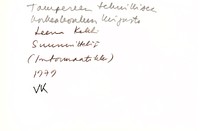 Tampereen teknillisen
korkeakoulun kirjasto
Leena Kahl
Suunnittelija
(informaatikko)
1979
VK